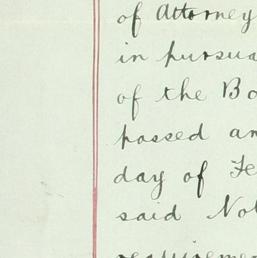 of Attorney
in pursua
of the Bo
passed an
day of Fe
said Not
requiremen